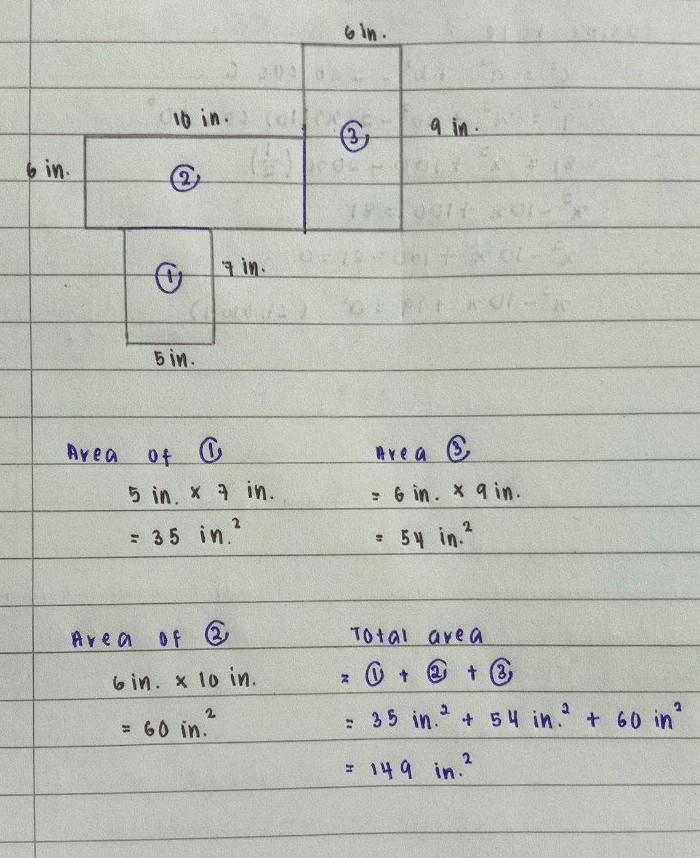 6 in.
10 in.
③
9 in.
6 in.
②
①
7 in.
5 in.
Area of ①
5 in. × 7 in.
= 35 in.²
Area ③
= 6 in. × 9 in.
= 54 in.²
Area of ②
6 in. × 10 in.
= 60 in.²
Total area
= ① + ② + ③
= 35 in.² + 54 in.² + 60 in²
= 149 in.²